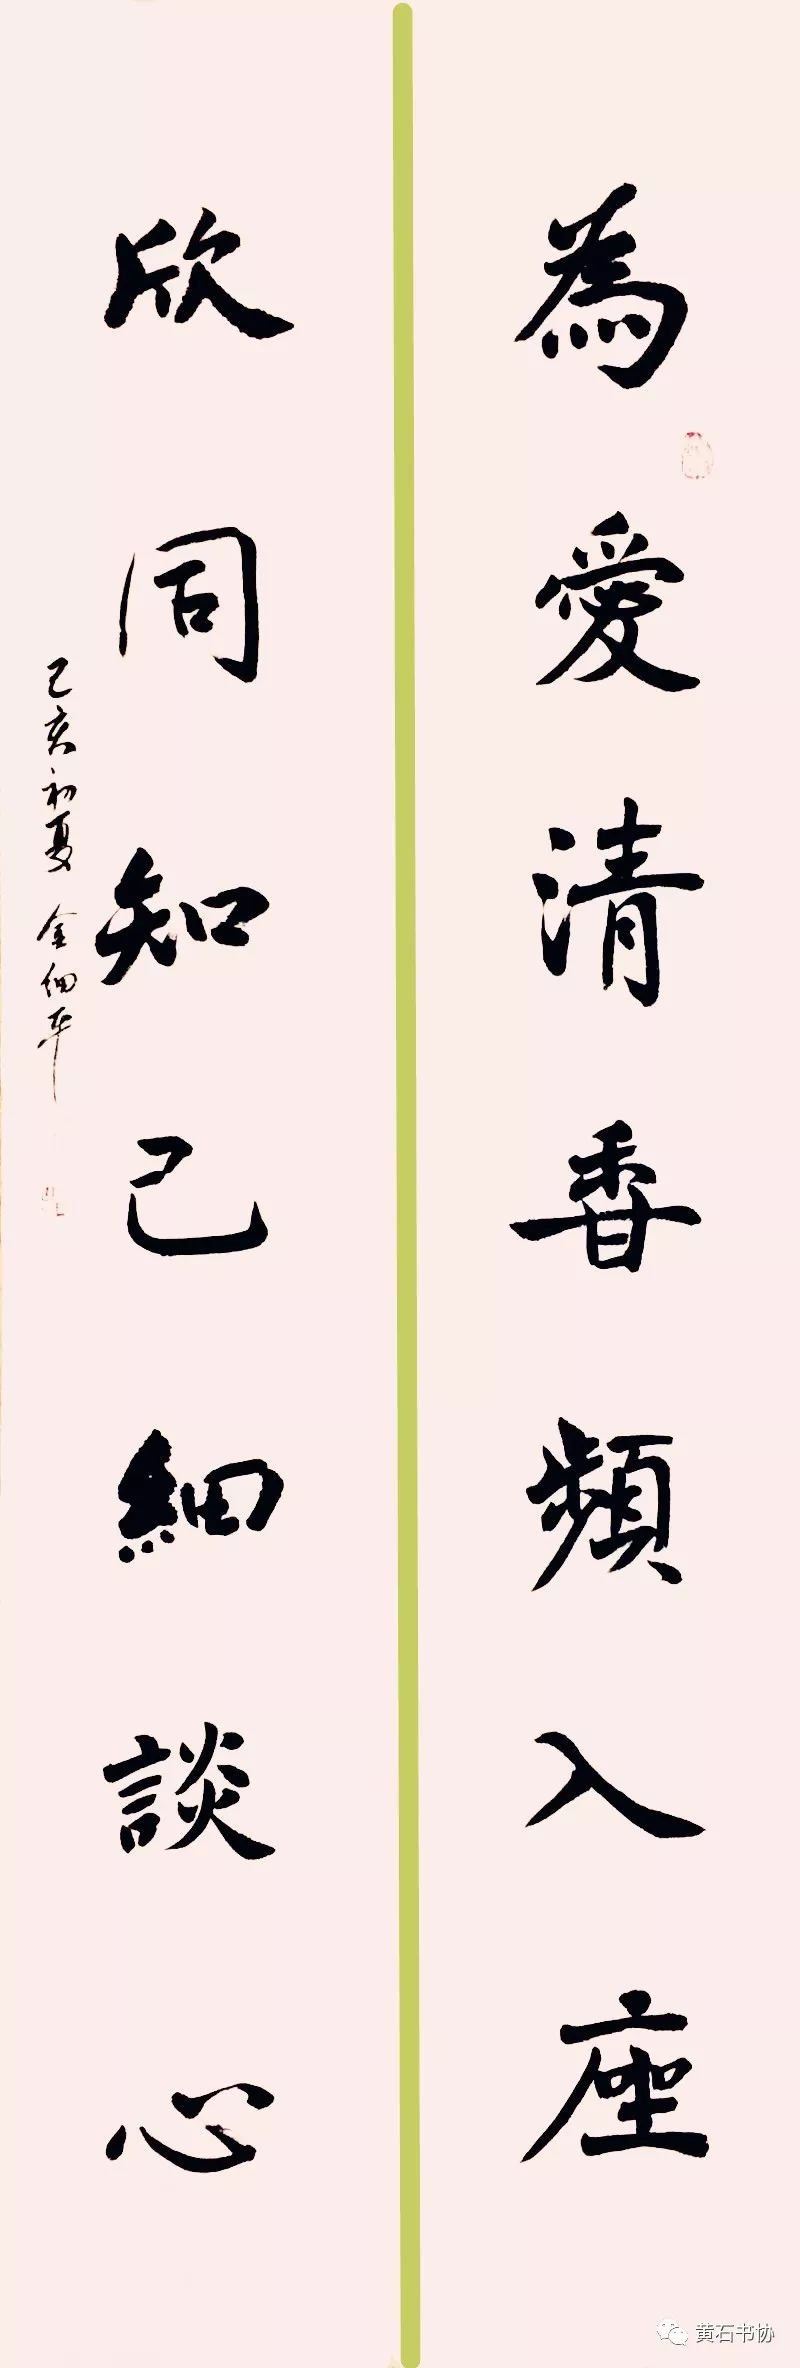 為愛清香頻入座
欣同知己細談心
己亥初夏 金細平
黄石书协